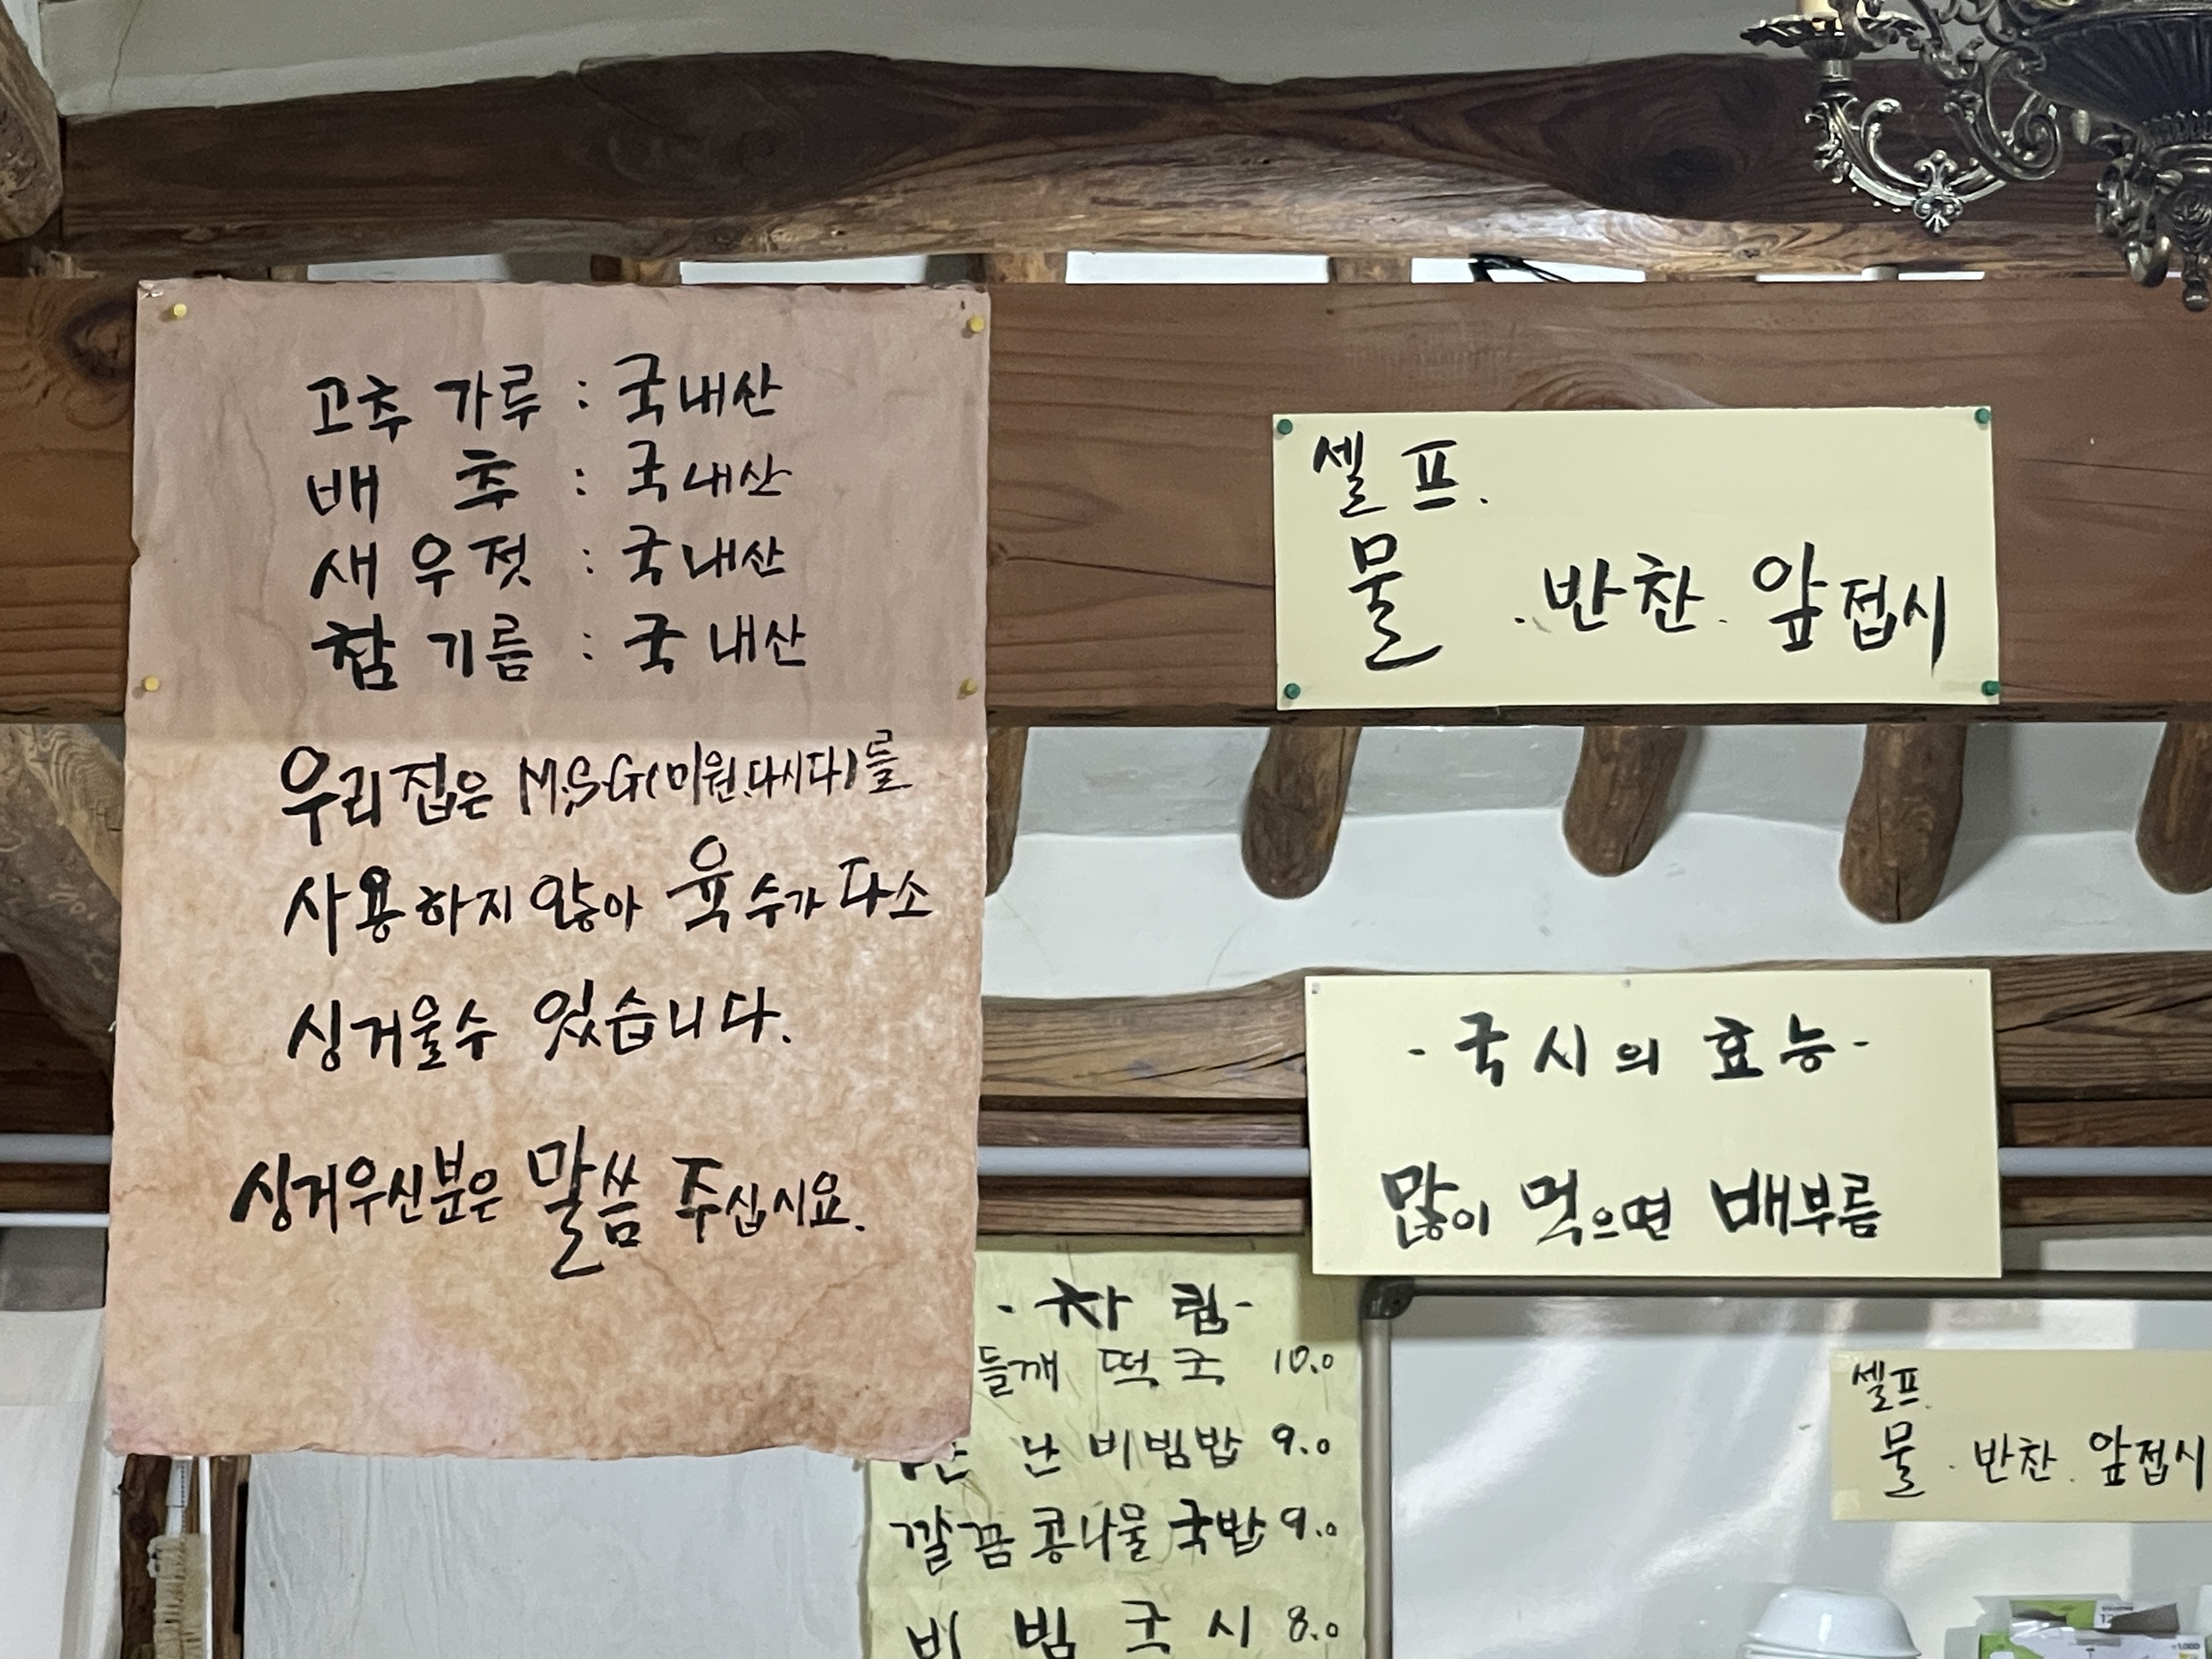 고추 가루 : 국내산
배 추 : 국내산
새 우 젓 : 국내산
참 기름 : 국 내산
우리집은 M.S.G(미원.다시다)를
사용하지 않아 육수가 다소
싱거울수 있습니다.
싱거우신분은 말씀 주십시요.
셀 프.
물 . 반찬 . 앞접시
- 국시의 효능 -
많이 먹으면 배부름
- 차림 -
들깨 떡국 10.0
난 비빔밥 9.0
깔끔 콩나물 국밥 9.0
비 빔 국 시 8.0
셀프.
물 . 반찬 . 앞접시